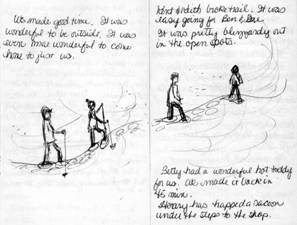 We made good time. It was
wonderful to be outside. It was
even more wonderful to come
home to just us.
broke trail. It was
easy going for Ben & Dee.
It was pretty blizzardy out
in the open spots.
Betty had a wonderful hot toddy
for us. We made it back in
45 min.
has trapped a racoon
under the steps to the shop.